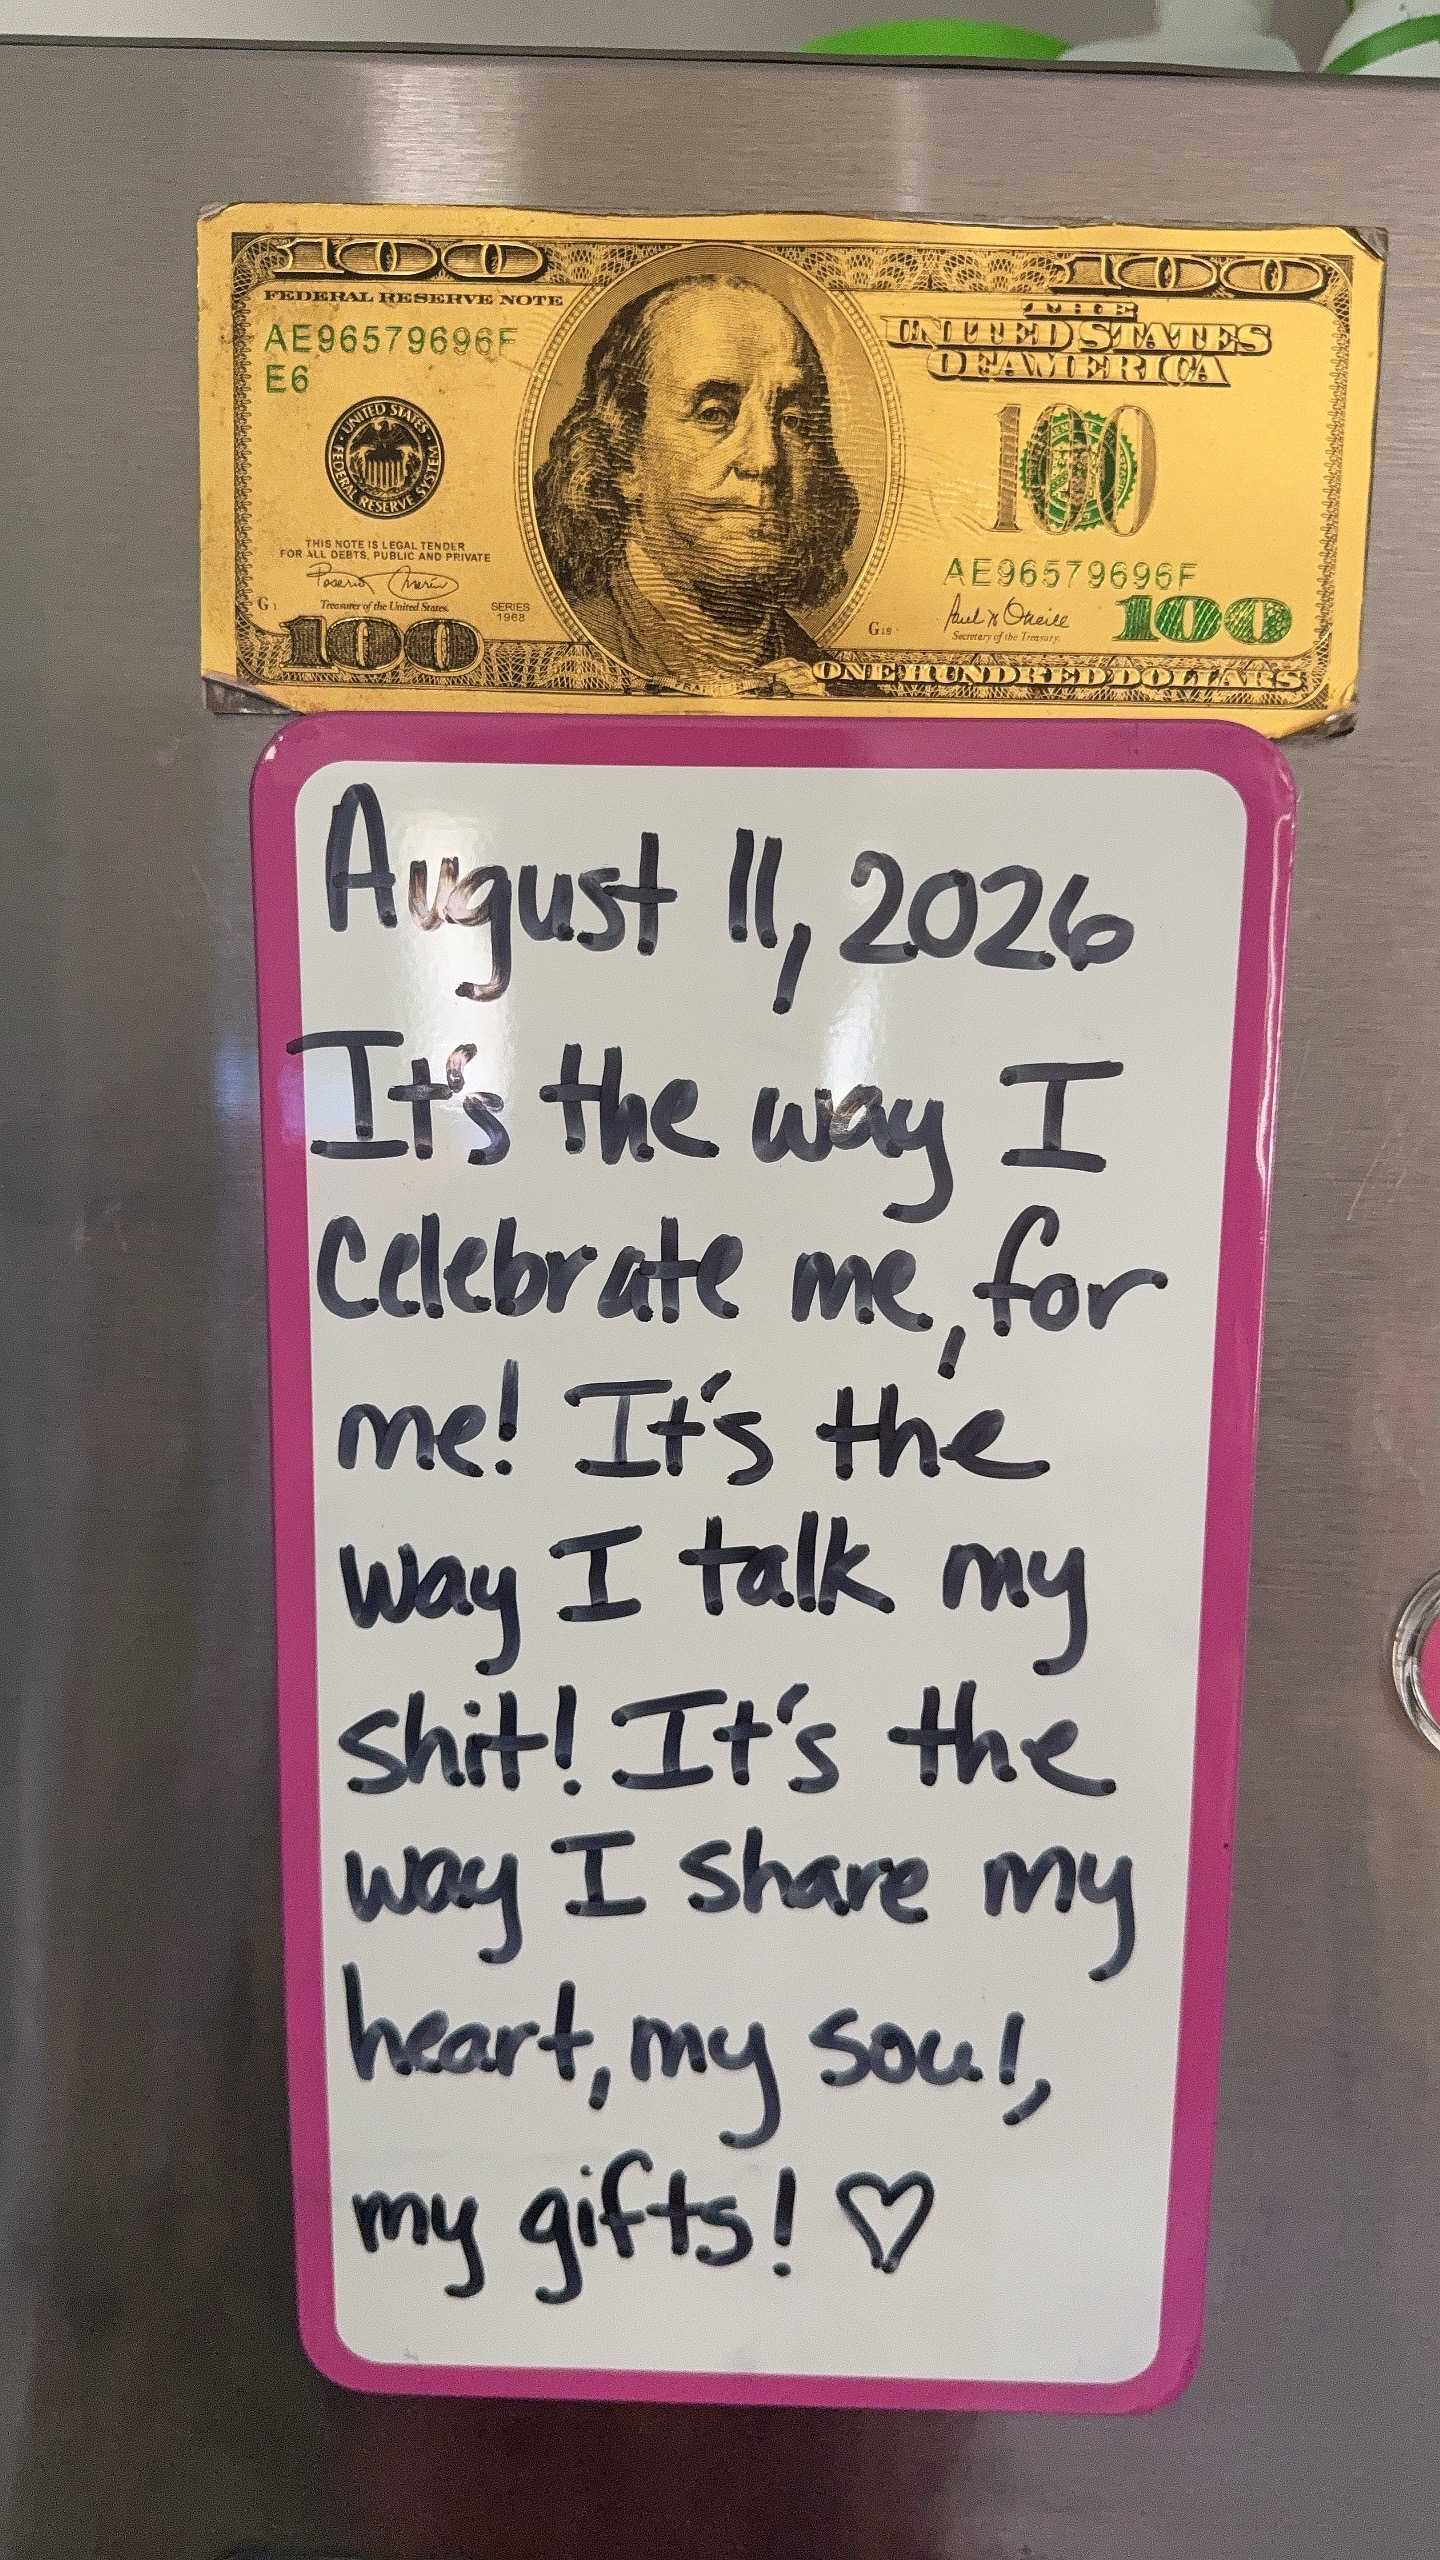 100 100
FEDERAL RESERVE NOTE
THE
UNITED STATES
OF AMERICA
AE96579696F
E6
UNITED STATES
FEDERAL RESERVE SYSTEM
100
THIS NOTE IS LEGAL TENDER
FOR ALL DEBTS, PUBLIC AND PRIVATE
AE96579696F
G1
Treasurer of the United States.
SERIES
1968
G18
Paul H O'Neill
Secretary of the Treasury.
100
100
ONE HUNDRED DOLLARS
August 11, 2026
It's the way I
celebrate me, for
me! It's the
way I talk my
shit! It's the
way I share my
heart, my soul,
my gifts! ♡